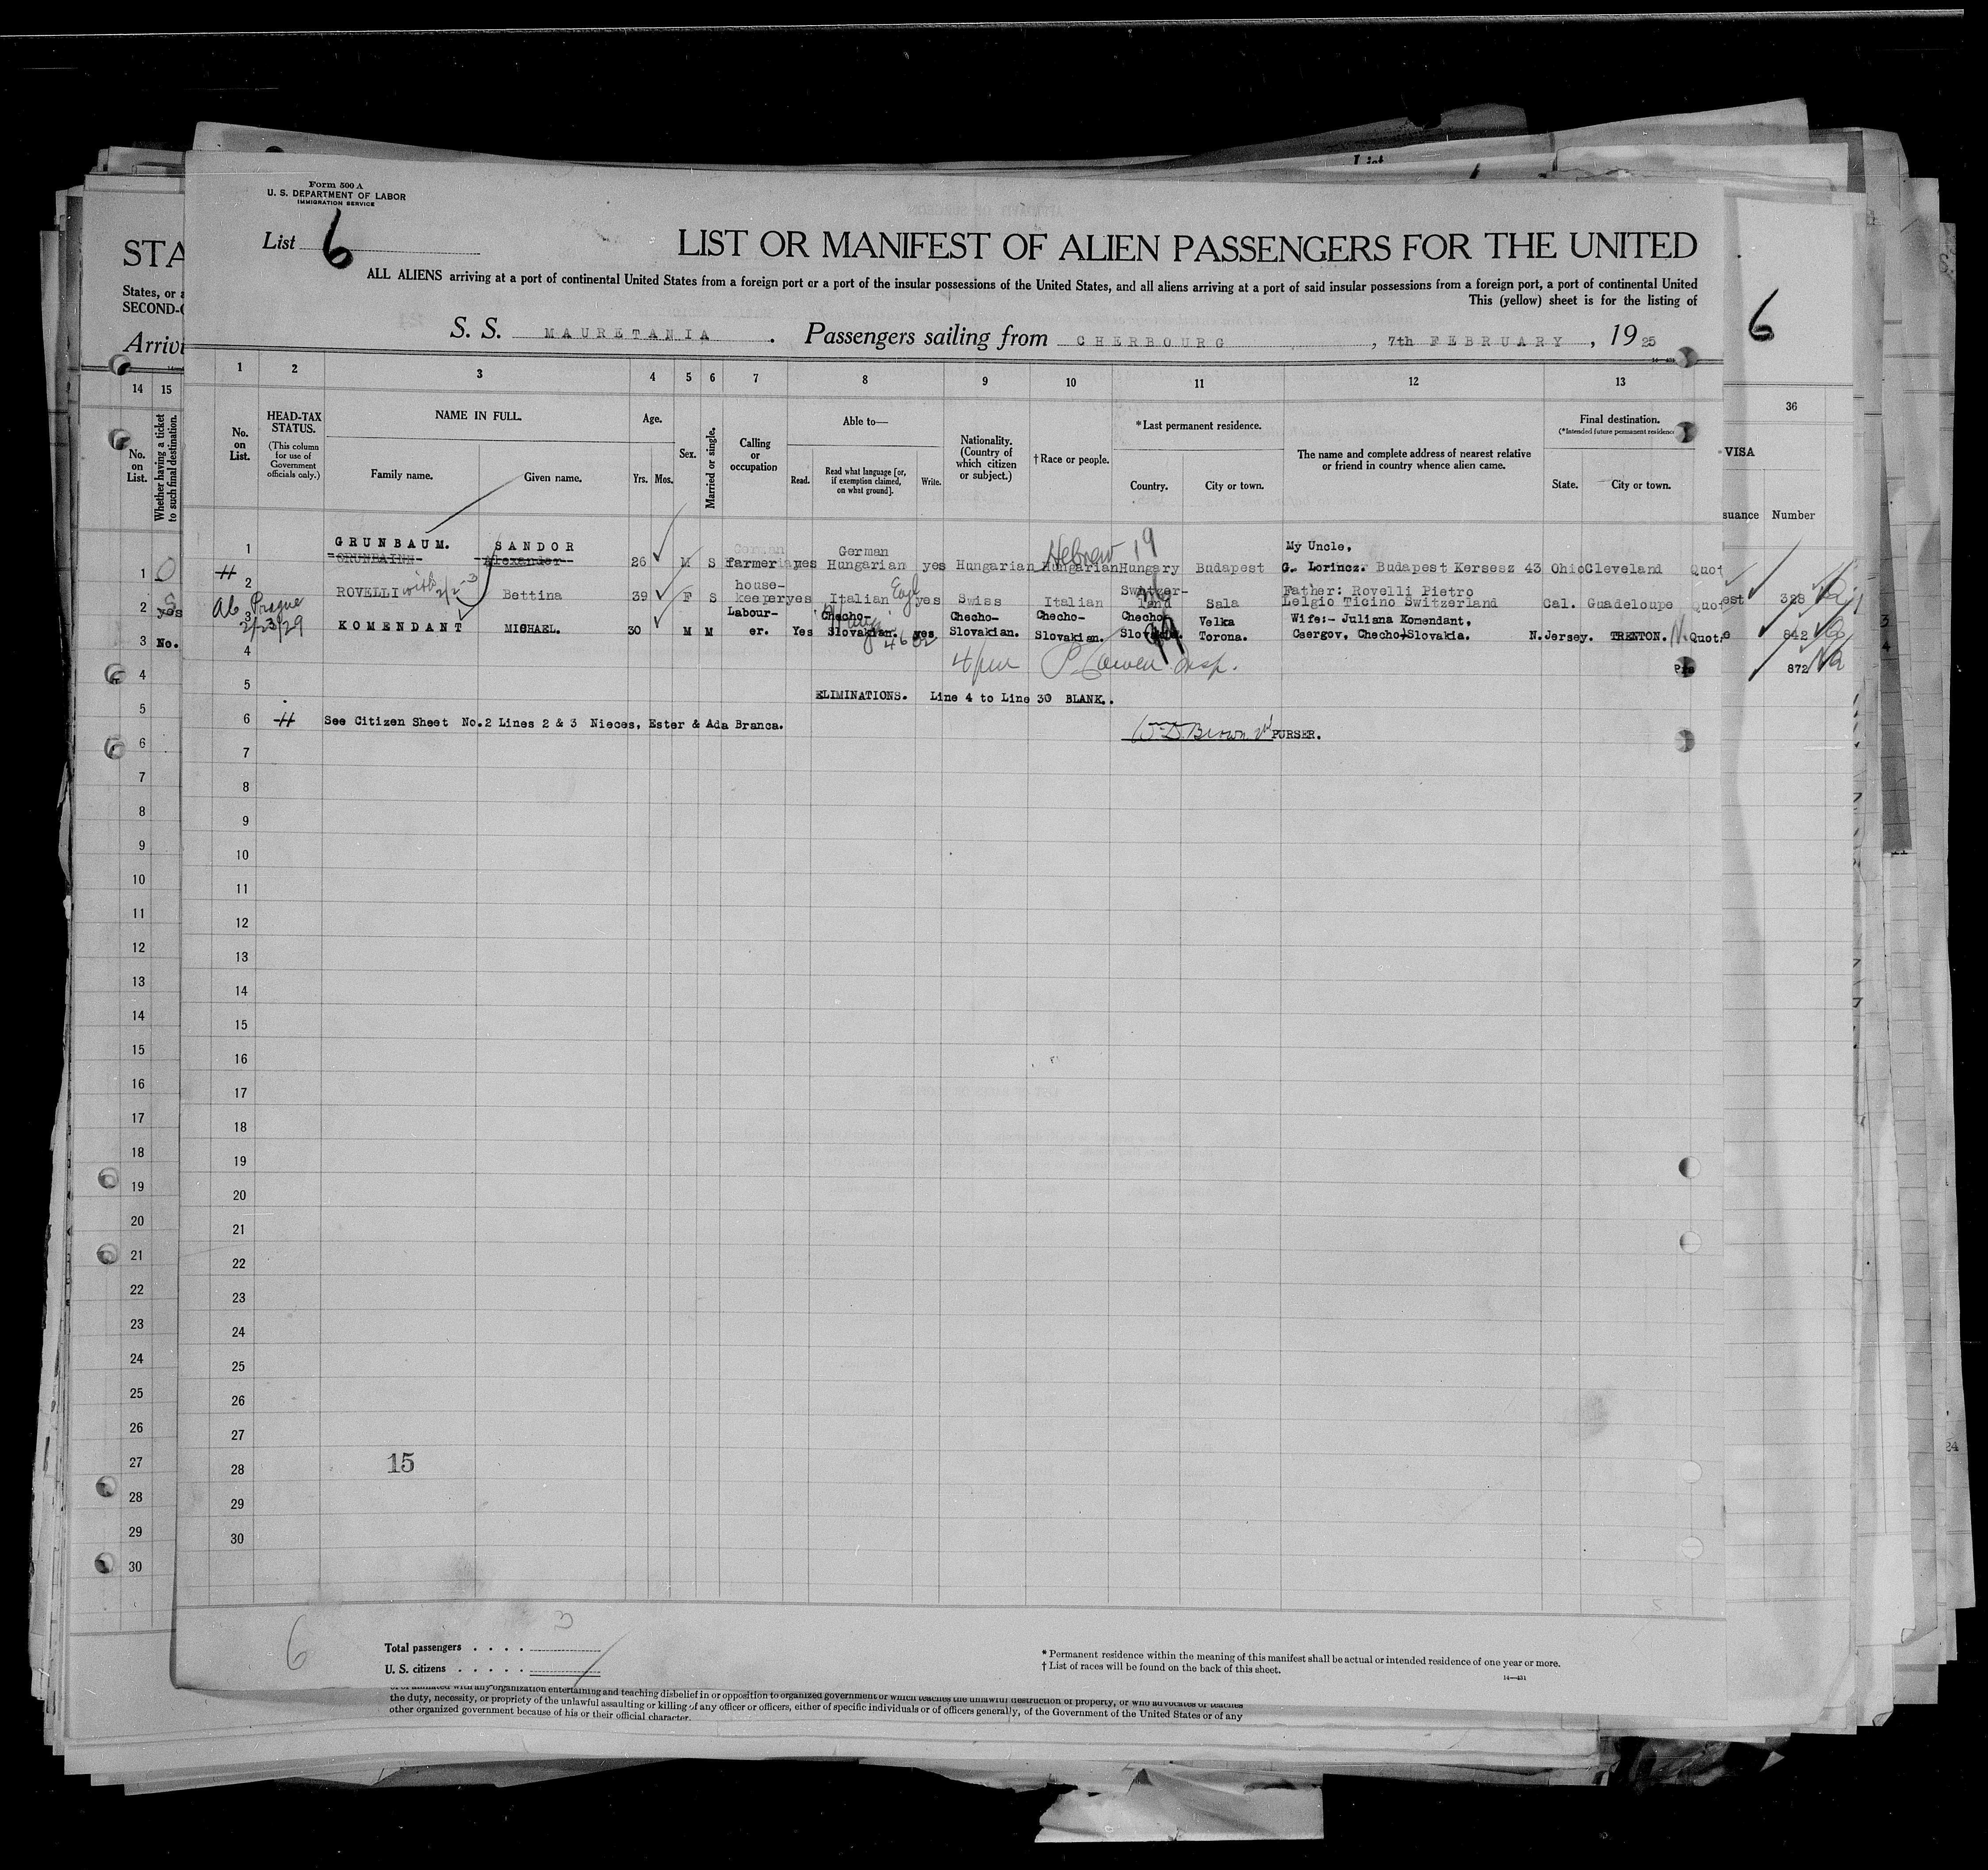 Form 500 A
U. S. DEPARTMENT OF LABOR
IMMIGRATION SERVICE
List 6
LIST OR MANIFEST OF ALIEN PASSENGERS FOR THE UNITED
ALL ALIENS arriving at a port of continental United States from a foreign port or a port of the insular possessions of the United States, and all aliens arriving at a port of said insular possessions from a foreign port, a port of continental United
This (yellow) sheet is for the listing of
S. S. MAURETANIA. Passengers sailing from CHERBOURG, 7th FEBRUARY, 1925
STA
States, or a
SECOND-C
Arrivi
6
14 15
No. on List.
Whether having a ticket to such final destination.
1 2 3 4 5 6 7 8 9 10 11 12 13
36
No. on List.
HEAD-TAX STATUS.
(This column for use of Government officials only.)
NAME IN FULL.
Family name. Given name.
Age.
Yrs. Mos.
Sex.
Married or single.
Calling or occupation
Able to—
Read. Read what language [or, if exemption claimed, on what ground]. Write.
Nationality. (Country of which citizen or subject.)
†Race or people.
*Last permanent residence.
Country. City or town.
The name and complete address of nearest relative or friend in country whence alien came.
Final destination.
(*Intended future permanent residence
State. City or town.
VISA
suance Number
1 GRUNBAUM. SANDOR
Alexander
26 M S farmer yes German Hungarian yes Hungarian Hungarian Hebrew 19 Hungary Budapest
My Uncle,
G. Lorincz. Budapest Kersesz 43 Ohio Cleveland Quot
2 ROVELLI with 2/2-3 Bettina 39 F S house-keeper yes Italian Engl yes Swiss Italian Switzer-land Sala
Father: Rovelli Pietro
Lelgio Ticino Switzerland Cal. Guadeloupe Quot
est 328
Ab Prague
2/23/29
3 KOMENDANT MICHAEL. 30 M M Labour-er. Yes Checho-Slovakian. yes Checho-Slovakian. Checho-Slovakian. Checho Slovakia. Velka Torona.
Wife:- Juliana Komendant,
Csergov, Checho-Slovakia. N.Jersey. TRENTON. N. Quot.
842
872
yes
No.
4
5
ELIMINATIONS. Line 4 to Line 30 BLANK..
6 # See Citizen Sheet No.2 Lines 2 & 3 Nieces, Ester & Ada Branca.
W D Brown PURSER.
7
8
9
10
11
12
13
14
15
16
17
18
19
20
21
22
23
24
25
26
27
28 15
29
30
1
2
3
4
5
6
7
8
9
10
11
12
13
14
15
16
17
18
19
20
21
22
23
24
25
26
27
28
29
30
6
3
Total passengers . . . .
U. S. citizens . . . . .
* Permanent residence within the meaning of this manifest shall be actual or intended residence of one year or more.
† List of races will be found on the back of this sheet.
14—431
the duty, necessity, or propriety of the unlawful assaulting or killing of any officer or officers, either of specific individuals or of officers generally, of the Government of the United States or of any
other organized government because of his or their official character.